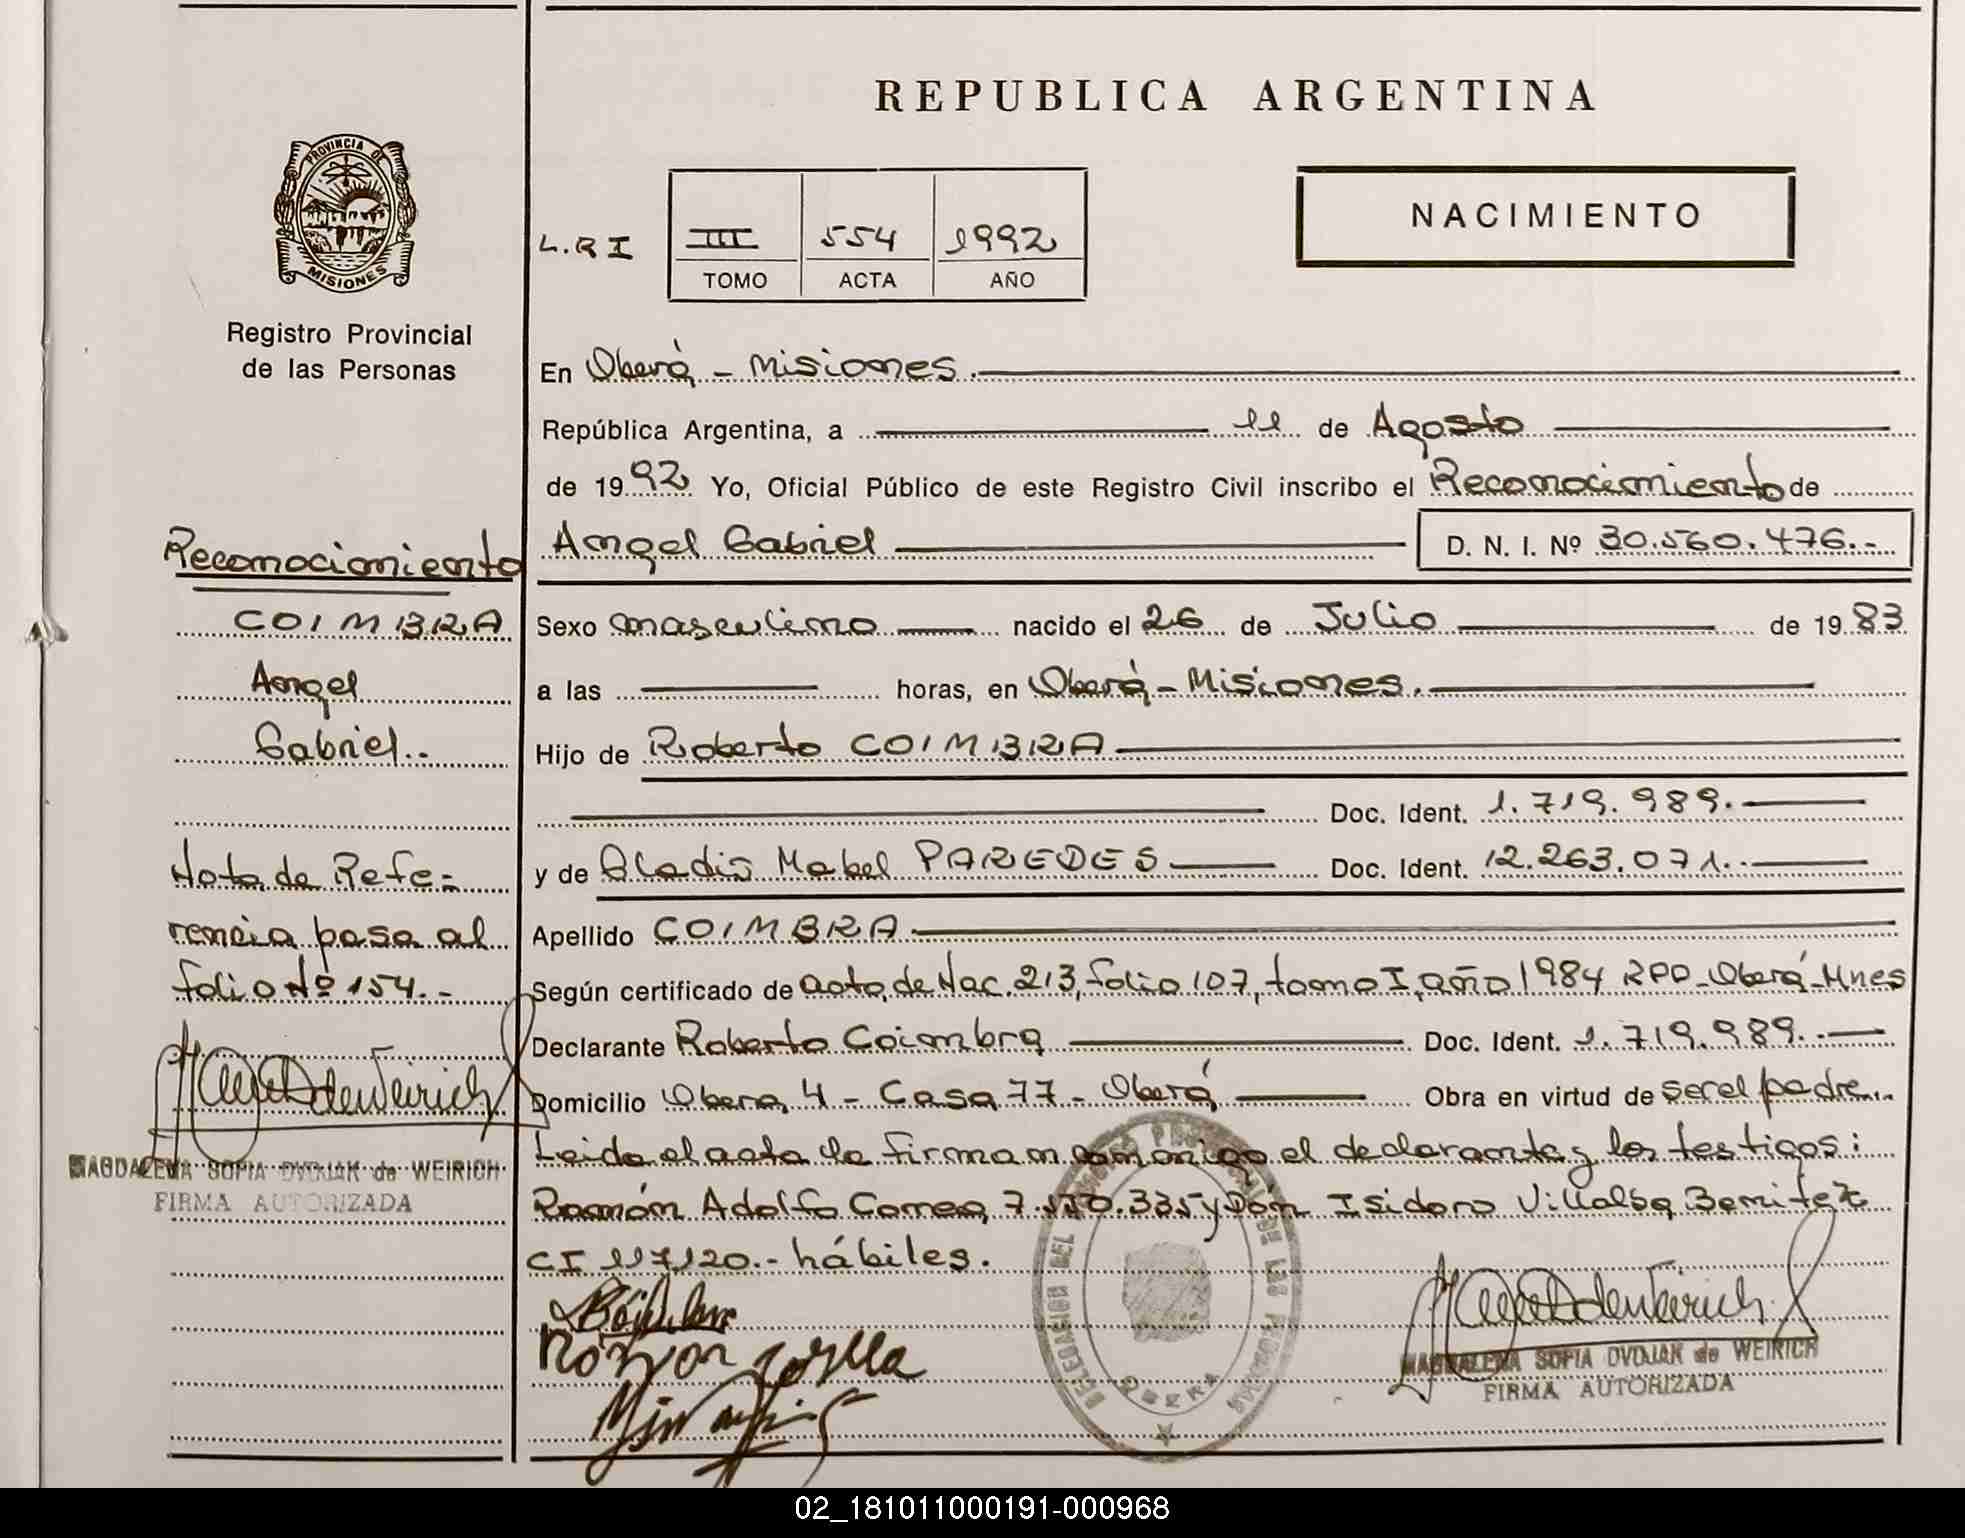 REPUBLICA ARGENTINA
PROVINCIA DE
MISIONES
Registro Provincial
de las Personas
L.R I
III 554 1992
TOMO ACTA AÑO
NACIMIENTO
En Oberá - Misiones.
República Argentina, a 11 de Agosto
de 1992 Yo, Oficial Público de este Registro Civil inscribo el Reconocimiento de
Angel Gabriel D. N. I. Nº 30.560.476.-
Sexo masculino nacido el 26 de Julio de 1983
a las horas, en Oberá - Misiones.
Hijo de Roberto COIMBRA
Doc. Ident. 1.719.989.
y de Gladis Mabel PAREDES Doc. Ident. 12.263.071.
Apellido COIMBRA
Según certificado de acta de Nac. 213, folio 107, tomo I, año 1984 RPP - Oberá - Mnes
Declarante Roberto Coimbra Doc. Ident. 1.719.989.
Domicilio Obera 4 - Casa 77 - Oberá Obra en virtud de ser el padre.
Leida el acta la firman conmigo el declarante y los testigos:
Ramón Adolfo Correa 7. .335 y Don Isidoro Villalba Benitez
CI 117120.- hábiles.
Reconocimiento
COIMBRA
Angel
Gabriel..
Nota de Refe-
rencia pasa al
folio Nº 154.-
MAGDALENA SOFIA DVOJAK de WEIRICH
FIRMA AUTORIZADA
DELEGACION DEL REGISTRO PROVINCIAL DE LAS PERSONAS
OBERA
MAGDALENA SOFIA DVOJAK de WEIRICH
FIRMA AUTORIZADA
02_181011000191-000968